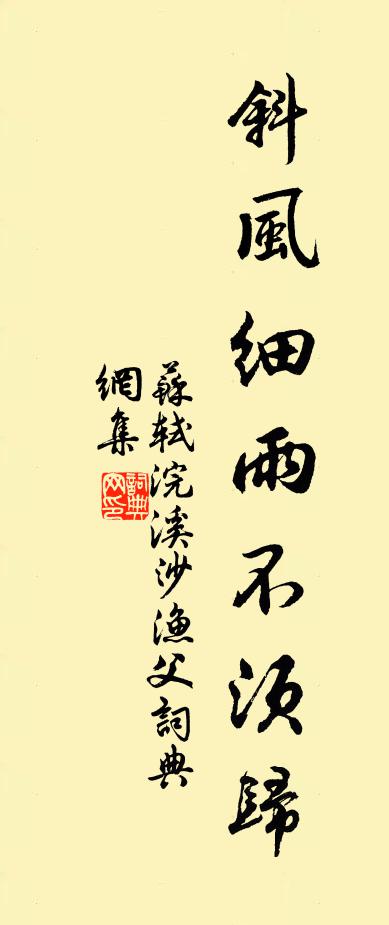 斜風細雨不須歸
蘇軾浣溪沙漁父詞典
網集
詞典网印